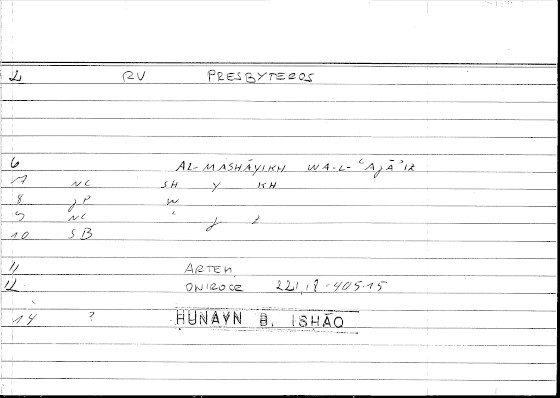 2 RV PRESBYTEROS
6 AL-MASHĀYIKH WA-L-ʿAJĀʾIZ
7 NC SH Y KH
8 JP W
9 NC ʿ J Z
10 SB
11 ARTEM.
12 ONIROCR 221,18-405-15
14 ? HUNAYN B. ISHĀQ